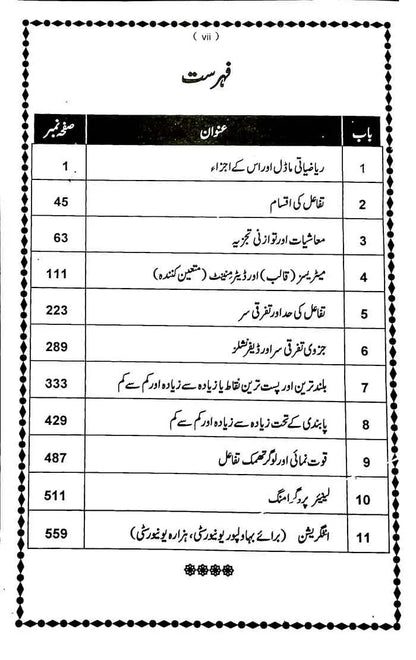 ( vii )
فہرست
باب عنوان صفحہ نمبر
1 ریاضیاتی ماڈل اور اس کے اجزاء 1
2 تفاعل کی اقسام 45
3 معاشیات اور توازنی تجزیہ 63
4 میٹریسز (قالب) اور ڈیٹرمنینٹ (متعین کنندہ) 111
5 تفاعل کی حد اور تفرقی سر 223
6 جزوی تفرقی سر اور ڈیفرنشلز 289
7 بلند ترین اور پست ترین نقاط یا زیادہ سے زیادہ اور کم سے کم 333
8 پابندی کے تحت زیادہ سے زیادہ اور کم سے کم 429
9 قوت نمائی اور لوگرتھمک تفاعل 487
10 لینیئر پروگرامنگ 511
11 انٹگریشن (برائے بہاولپور یونیورسٹی، ہزارہ یونیورسٹی) 559